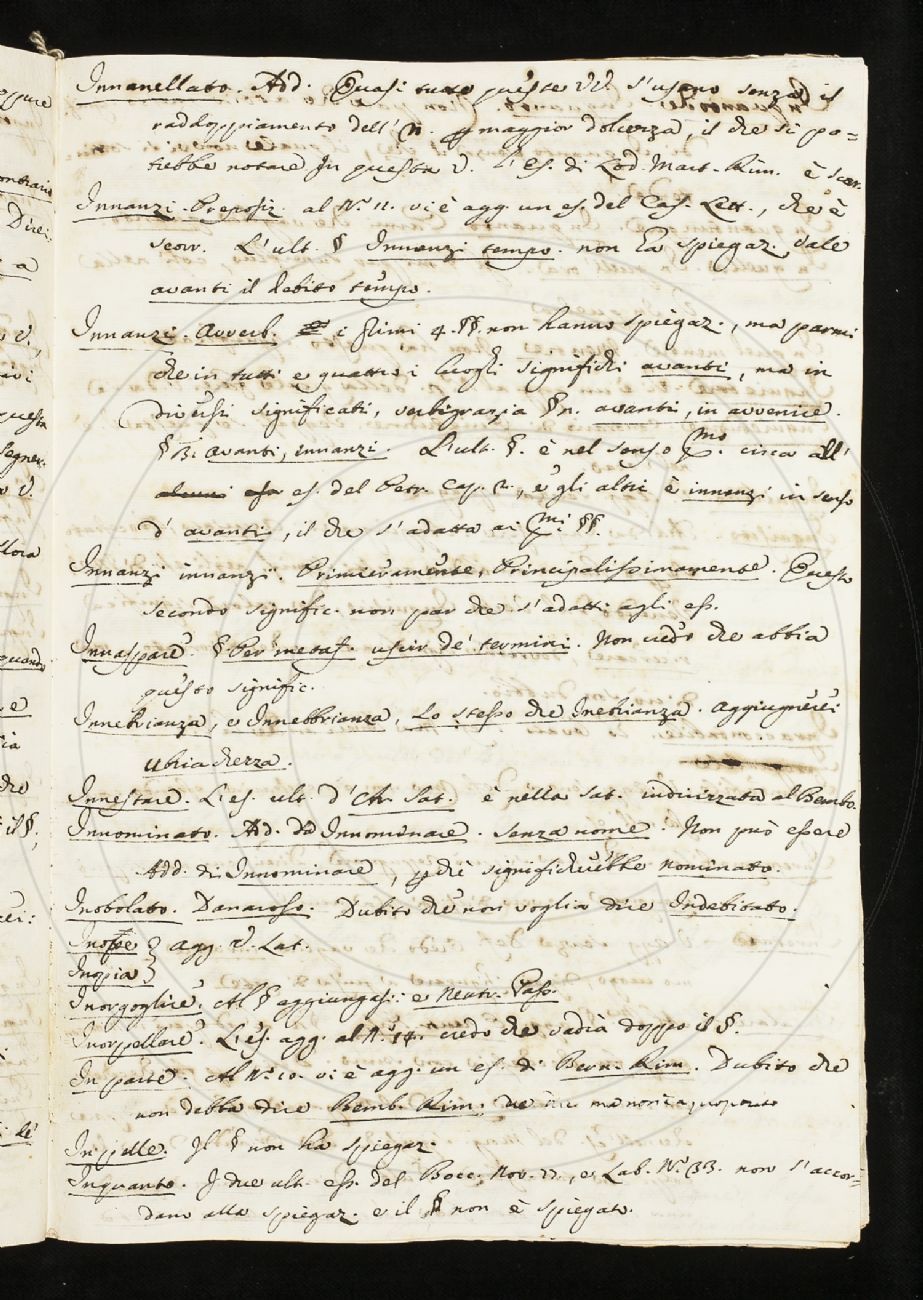 Innanellato. Add. Quasi tutte queste VV. s'usano senza il
raddoppiamento dell'N. p maggior dolcezza, il che si po=
trebbe notare. In questa V. l'es. di Lod. Mart. Rim. è scorr.
Innanzi. Preposiz. al N.º 11. vi è agg. un es. del Cas. Lett., che è
scorr. L'ult. § Innanzi tempo. non ha spiegaz. vale
avanti il debito tempo.
Innanzi. Avverb. i primi 4. §§. non hanno spiegaz., ma parmi
che in tutti e quattro i luoghi significhi avanti, ma in
diversi significati, verbigrazia § n. avanti, in avvenire.
§ avanti, innanzi. L'ult. §. è nel senso mo. circa all'
es. del Petr. Cap. 2., e gli altri è innanzi in senso
d'avanti, il che s'adatta ai mi §§.
Innanzi innanzi. Primieramente, Principalissimamente. Questo
secondo signific. non par che s'adatti agli ess.
Innaspare. § Per metaf. uscir de' termini. Non credo che abbia
questo signific.
Innebrianza, e Innebbrianza, Lo stesso che Inebrianza. aggiugnerei
Ubriachezza.
Innestare. L'es. ult. d'Ar. Sat. è nella Sat. indirizzata al Bembo.
Innominato. Ad. da Innominare. Senza nome. Non può essere
Add. di Innominare, pchè significherebbe nominato.
Inobolato. Danaroso. Dubito che non voglia dire Indebitato.
Inope } agg. V. Lat.
Inopia }
Inorgoglire. Al § aggiungasi: e Neutr. Pass.
Inorpellare. L'es. agg. al N.º 14. credo che vadia doppo il §.
In parte. Al N.º 10. vi è agg. un es. di Bern. Rim. Dubito che
non debba dire Bemb. Rim. ma non a proposito
In pelle. Il § non ha spiegaz.
Inquanto. I due ult. ess. del Bocc. Nov. 77., e Lab. N.º 33. non s'accor=
dano alla spiegaz. e il § non è spiegato.